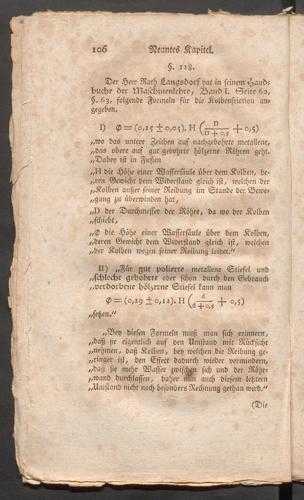 106 Neuntes Kapitel.
§. 118.
Der Herr Rath Langsdorf hat in seinem Hand-
buche der Maschinenlehre, Band I. Seite 62,
§. 63, folgende Formeln für die Kolbenfriction an-
gegeben.
I) Φ = (0,15 ± 0,05). H (D / D + 0,5 + 0,5)
„wo das untere Zeichen auf nachgebohrte metallene,
„das obere auf gut gebohrte hölzerne Röhren geht.
„Dabey ist in Fußen
„H die Höhe einer Wassersäule über dem Kolben, de-
„ren Gewicht dem Widerstand gleich ist, welchen der
„Kolben außer seiner Reibung im Stande der Bewe-
„gung zu überwinden hat,
„D der Durchmesser der Röhre, da wo der Kolben
„schiebt,
„Φ die Höhe einer Wassersäule über dem Kolben,
„deren Gewicht dem Widerstand gleich ist, welchen
„der Kolben wegen seiner Reibung leidet.“
II) „Für gut polierte metallene Stiefel und
„schlecht gebohrte oder schon durch den Gebrauch
„verdorbene hölzerne Stiefel kann man
Φ = (0,19 ± 0,11). H (d / d + 0,5 + 0,5)
„setzen.“
„Bey diesen Formeln muß man sich erinnern,
„daß sie eigentlich auf den Umstand mit Rücksicht
„nehmen, daß Kolben, bey welchen die Reibung ge-
„ringer ist, den Effect dadurch wieder vermindern,
„daß sie mehr Wasser zwischen sich und der Röhr-
„wand durchlassen, daher man auch diesem letztern
„Umstand nicht noch besonders Rechnung gethan wird.“
(Die